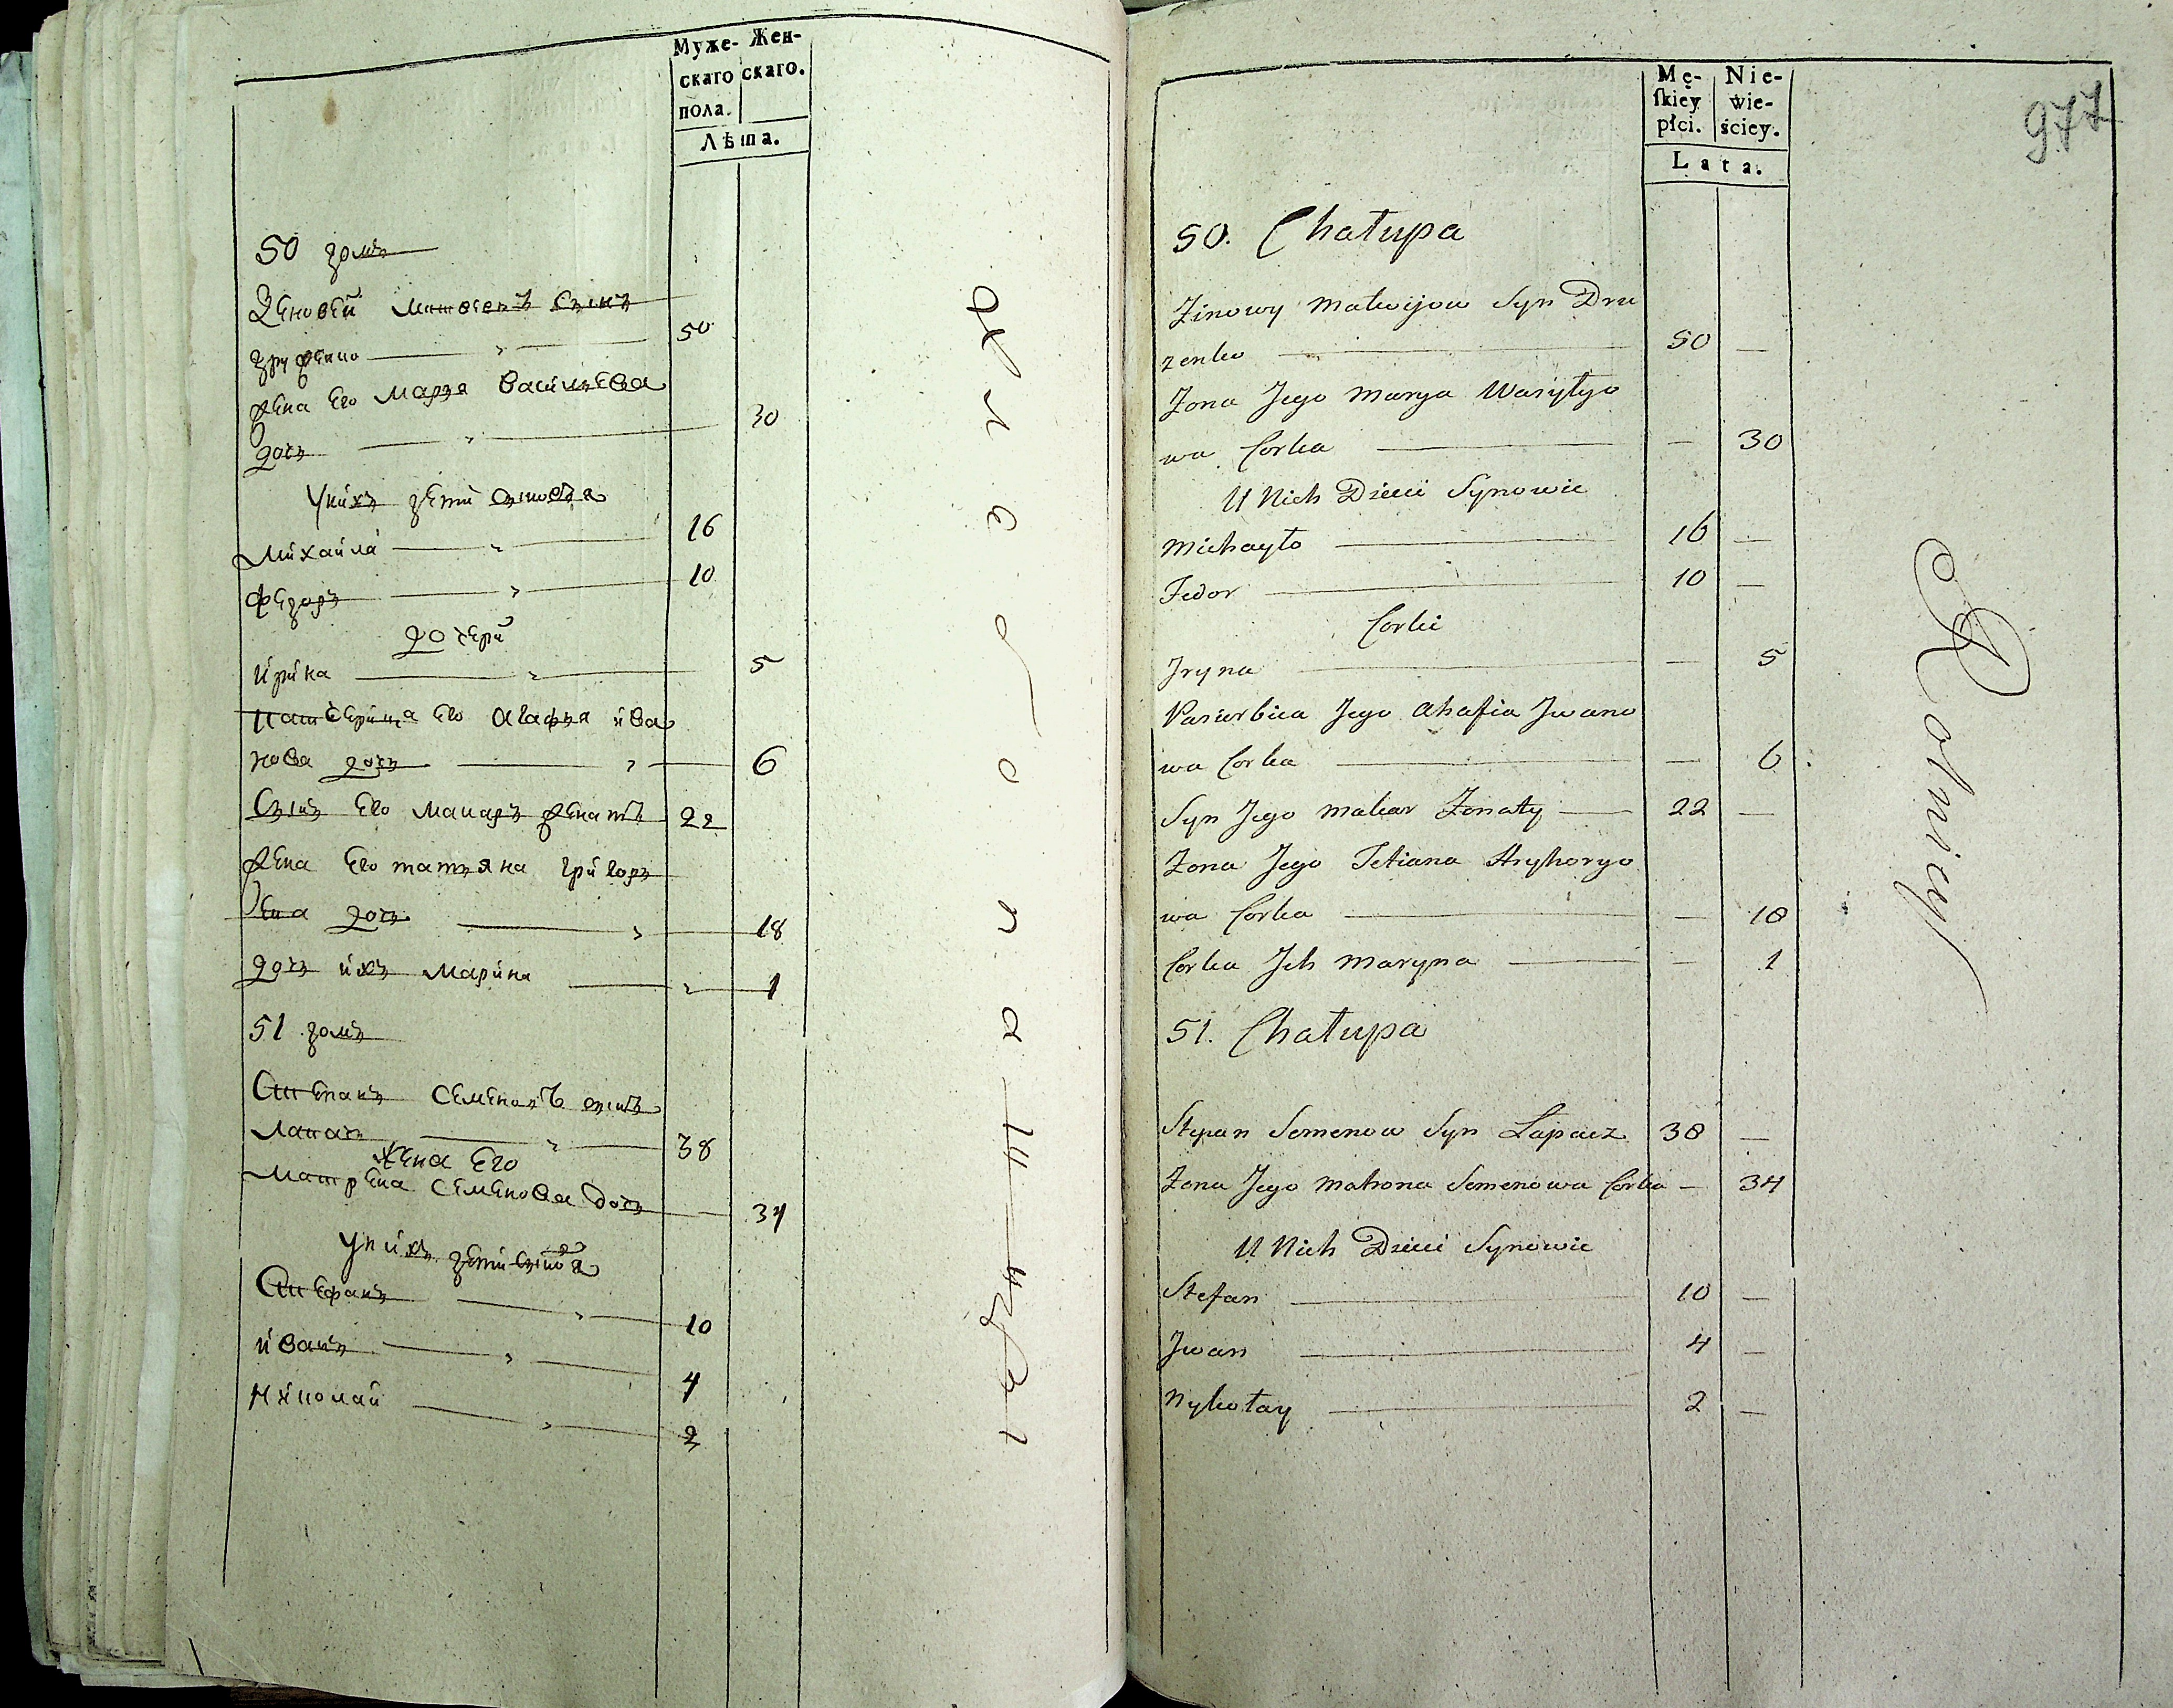 Муже- Жен-
скаго скаго.
пола.
Лѣта.
50 домъ
Зеновей Матвеевъ Сынъ
друженко 50
жена Его Маря Василиева
дочь 30
У нихъ дети сынове
Михайла 16
Федоръ 10
дочери
Ирина 5
Патчерица Его Агафия Ива
нова дочь 6
Сынъ Его Макаръ женатъ 22
жена Его татяна Григорь
ева дочь 18
дочь ихъ Марина 1
51 домъ
Степанъ Семеновъ сынъ
Лапачъ 38
жена Его
Матрена Семенова дочь — 34
У нихъ дети сынове
Стефанъ 10
Иванъ 4
Николай 2
Mę- Nie-
ſkiey wie-
płci. ściey.
Lata.
977
50. Chałupa
Zinowy Matwijow Syn Dru
zenko 50 —
Zona Jego Marya Wasyłyo
wa Corka — 30
U Nich Dzieci Synowie
Michayło 16 —
Fedor 10 —
Corki
Jryna — 5
Pasierbica Jego Ahafia Jwano
wa Corka — 6
Syn Jego Makar Zonaty 22 —
Zona Jego Tetiana Hryhoryo
wa Corka — 18
Corka Jch Maryna — 1
51. Chałupa
Stepan Semenow Syn Łapacz 38 —
Zona Jego Motrona Semenowa Corka — 34
U Nich Dzieci Synowie
Stefan 10 —
Jwan 4 —
Nykołay 2 —
Rolnicy